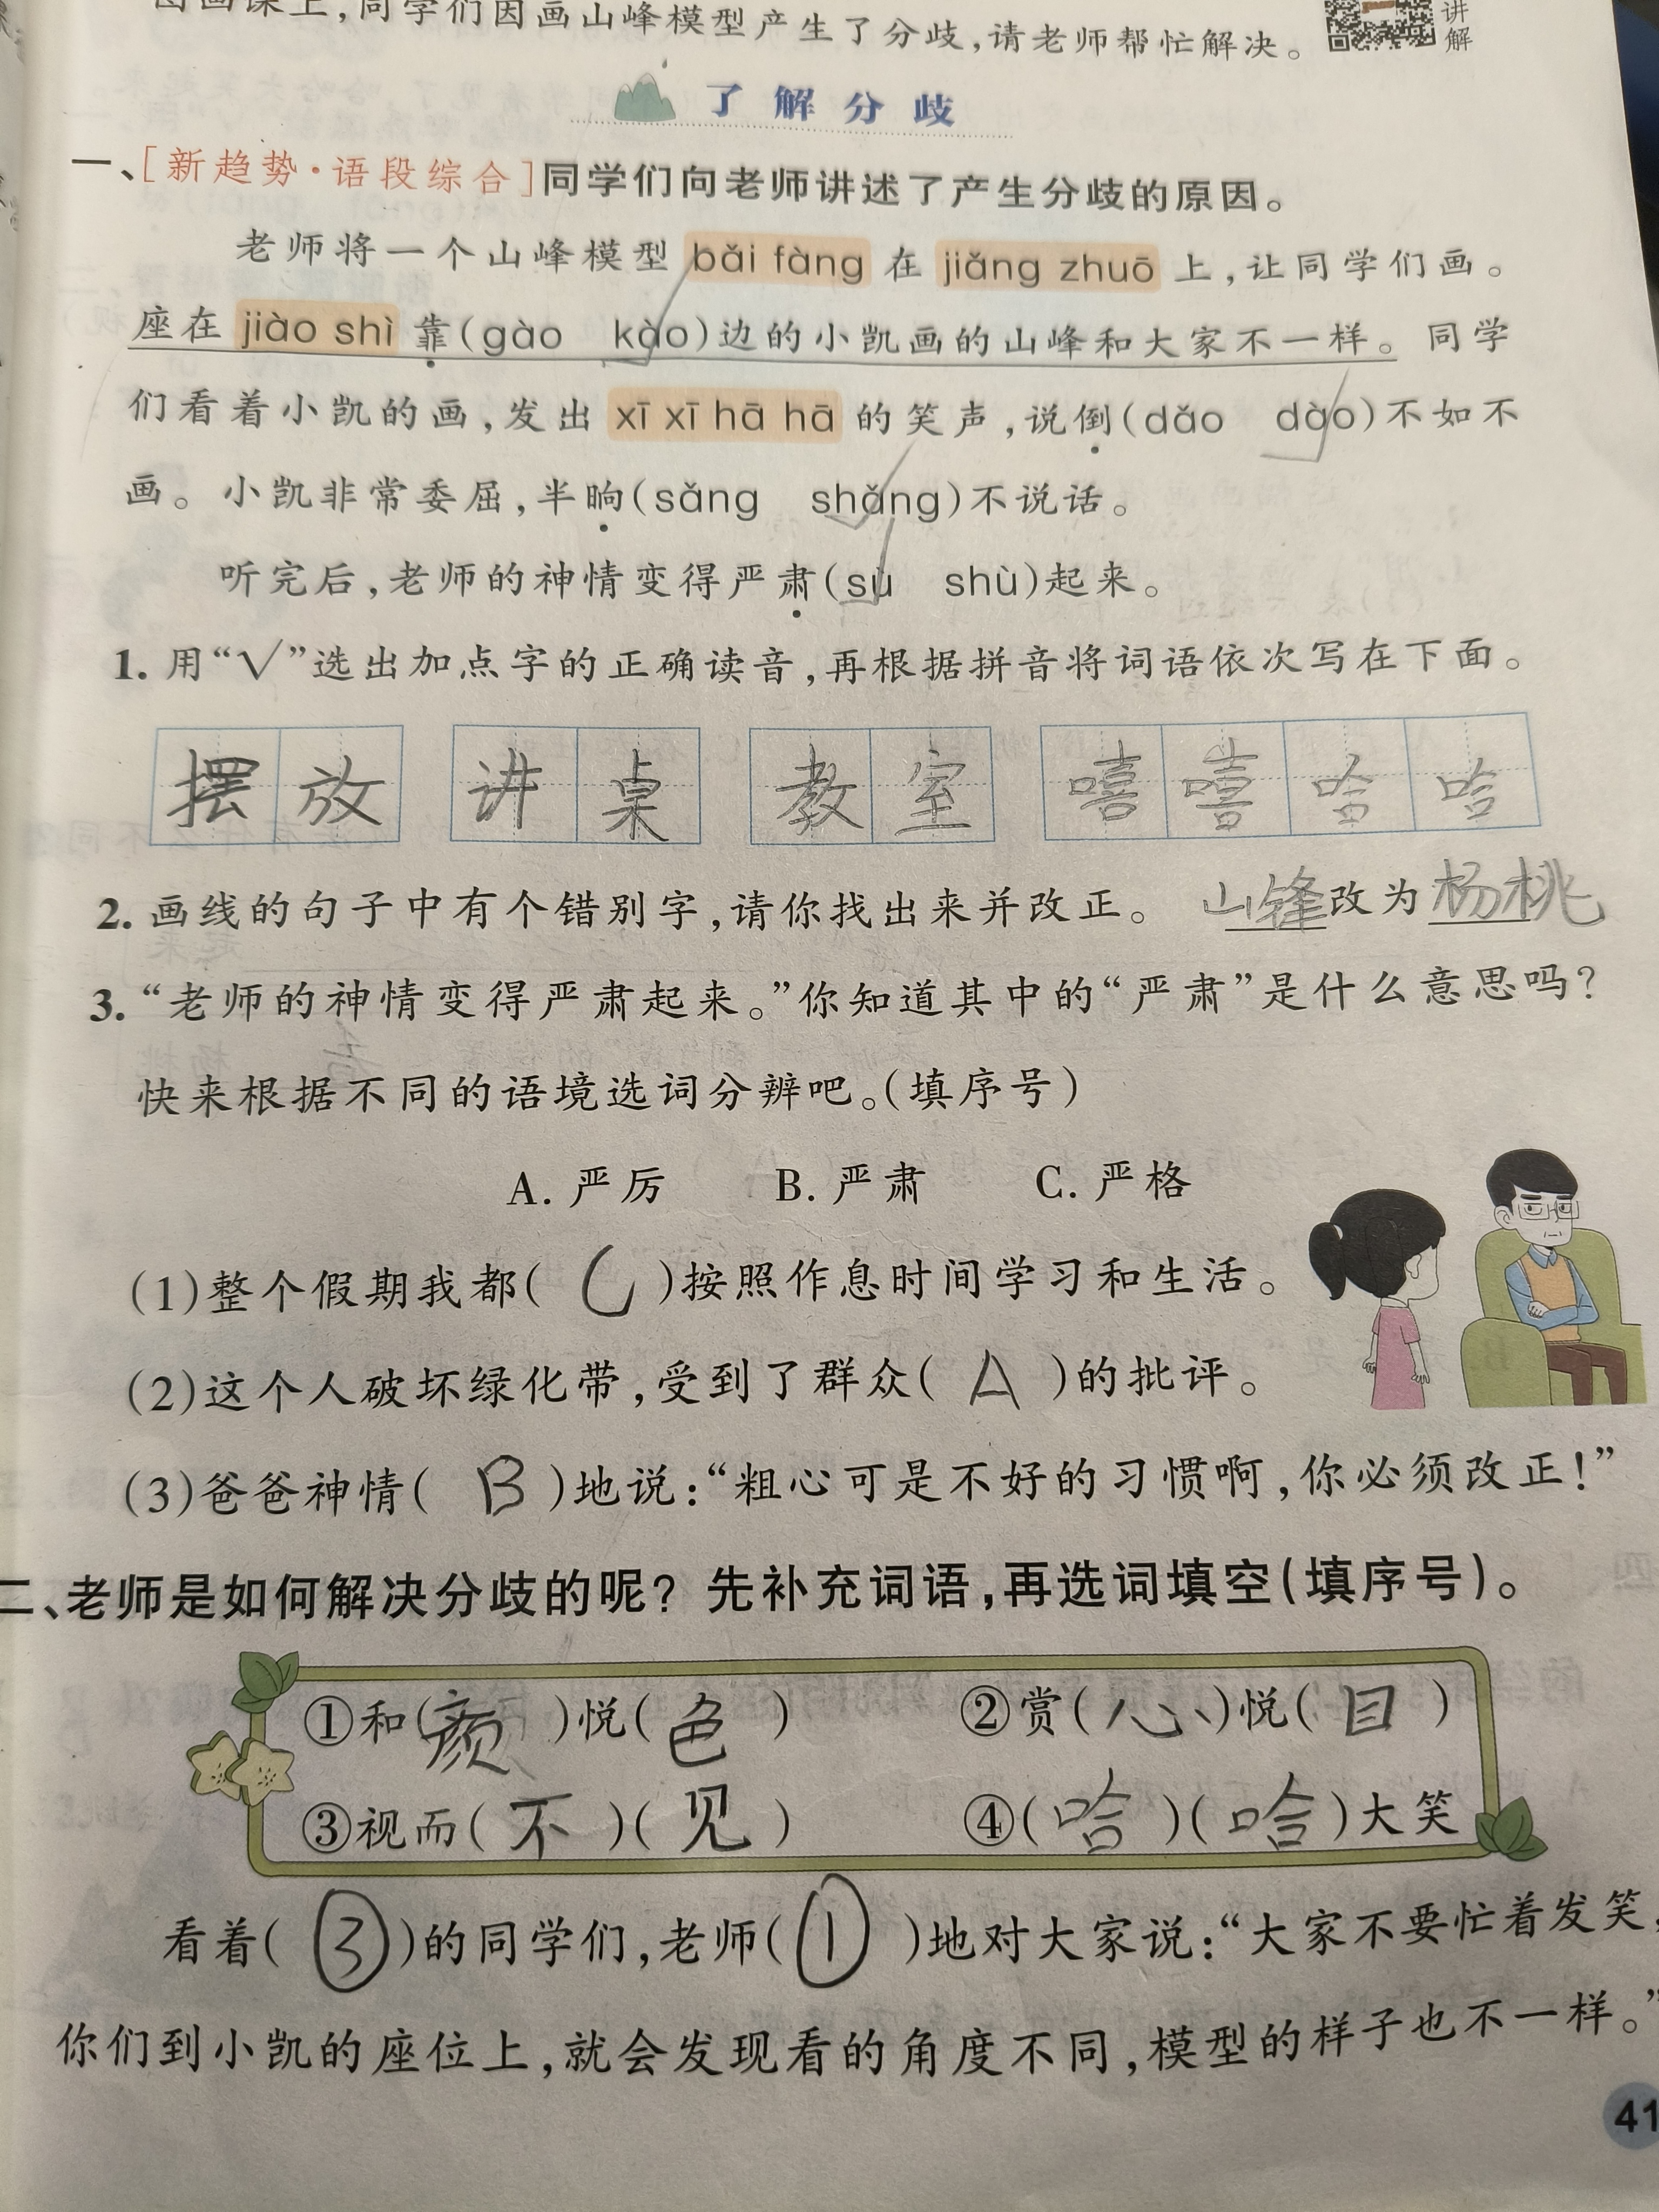 图画课上,同学们因画山峰模型产生了分歧,请老师帮忙解决。
讲解
了解分歧
一、[新趋势·语段综合]同学们向老师讲述了产生分歧的原因。
老师将一个山峰模型 bǎi fàng 在 jiǎng zhuō 上,让同学们画。
座在 jiào shì 靠(gào kào)边的小凯画的山峰和大家不一样。同学
们看着小凯的画,发出 xī xī hā hā 的笑声,说倒(dǎo dào)不如不
画。小凯非常委屈,半晌(sǎng shǎng)不说话。
听完后,老师的神情变得严肃(sù shù)起来。
1. 用“√”选出加点字的正确读音,再根据拼音将词语依次写在下面。
摆放 讲桌 教室 嘻嘻哈哈
2. 画线的句子中有个错别字,请你找出来并改正。 山锋改为杨桃
3. “老师的神情变得严肃起来。”你知道其中的“严肃”是什么意思吗?
快来根据不同的语境选词分辨吧。(填序号)
A. 严厉 B. 严肃 C. 严格
(1)整个假期我都( C )按照作息时间学习和生活。
(2)这个人破坏绿化带,受到了群众( A )的批评。
(3)爸爸神情( B )地说:“粗心可是不好的习惯啊,你必须改正!”
二、老师是如何解决分歧的呢? 先补充词语,再选词填空(填序号)。
①和(颜)悦(色) ②赏(心)悦(目)
③视而(不)(见) ④(哈)(哈)大笑
看着(③)的同学们,老师(①)地对大家说:“大家不要忙着发笑,
你们到小凯的座位上,就会发现看的角度不同,模型的样子也不一样。”
41